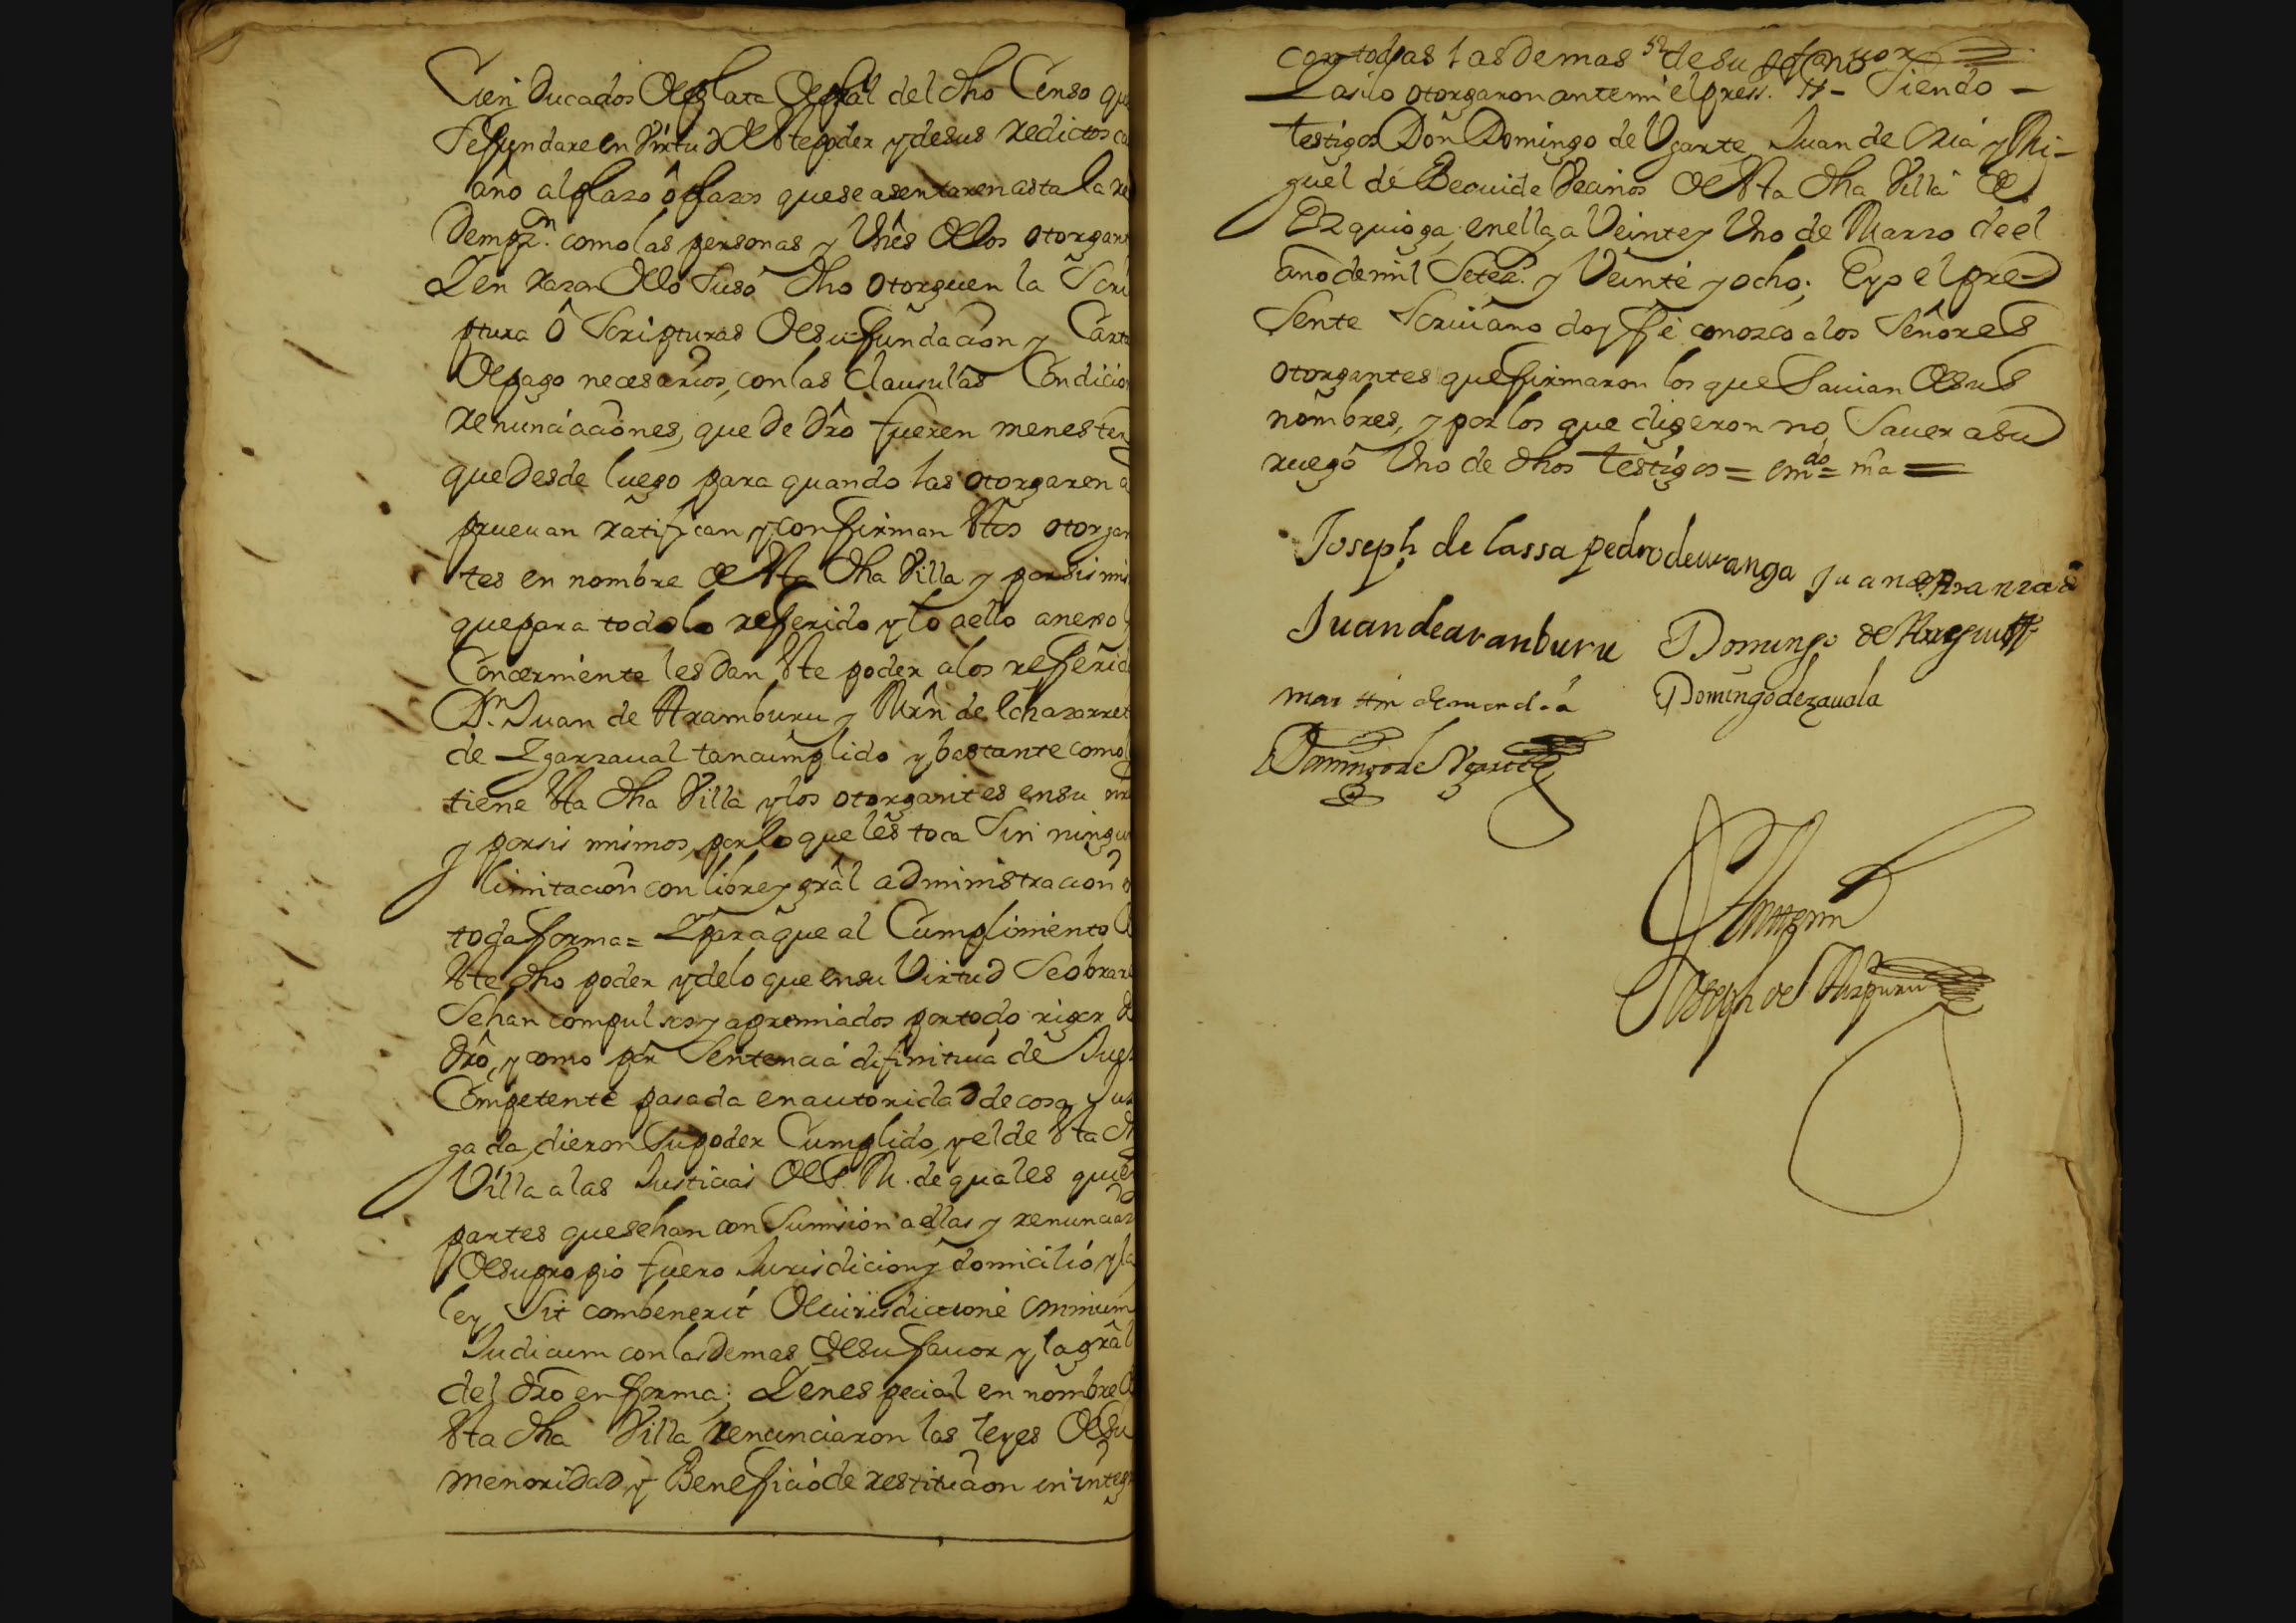 Cien Ducados de plata de pral del dho Censo que
se fundare en Virtud de Ste poder y de sus reditos ca
año al plazo ô plazos que se asentaren asta la re
dempzn. como las personas y Vnês de los otorgan
Y en razon de lo suso dho otorguen la Scri
ptura Ô Scripturas de su fundacion y Carta
de pago necesarios, con las Clausulas Condicio
renunciaciones, que de drô fueren menester
que desde luego para quando las otorgaren a
prueuan ratifican y confirman Stos otorgan
tes en nombre de Sta dha Villa y por si mis
que para todo lo refferido y lo a ello anexo y
Concerniente les dan Ste poder a los refferid
Dn. Juan de Aramburu y Mrn de Echazarret
de Ygarzaual tan cumplido y bastante como
tiene Sta dha Villa y los otorgantes en su
y por si mimos, por lo que les toca Sin ningu
limitacion con libre y grâl administracion
toda forma = Y para que al Cumplimiento
Ste dho poder y de lo que en su Virtud Se obrare
Sehan compulsos y apremiados por todo rigor
drô, y como por Sentencia difinitiua de Juez
Competente pasada en autoridad de cosa Juz
gada, dieron Su poder Cumplido, y el de Sta
Villa a las Justicias de S. M. de quales quier
partes que sehan con Sumision a ellas y renunciaz
de su propio fuero Jurisdicion y domicilio y la
ley Sit combenerit de iurisdictione Omnium
Judicum con las demas de su fauor y la grâl
del drô en forma; Y en especial en nombre
Sta dha Villa renunciaron las leyes de su
menoridad y Beneficio de restitucion in integ
con todas las demas de su fauor
Y asi lo otorgaron ante mi el press. Siendo
testigos Dôn Domingo de Vgarte Juan de Oria y Mi-
guel de Beouide Vecinos de Sta dha Villa de
Ezquioga, en ella a Veinte y Vno de Marzo de el
año de mil Setez. y Veinte y ocho; E yo el pre
Sente Scriuano doy fê conozco a los Señores
otorgantes que firmaron los que Sauian de sus
nombres, y por los que digeron no Sauer a su
ruego Vno de dhos testigos = emdo = ma =
Joseph de lassa pedro de uranga Juan de Aranzadi
Juan de aranburu Domingo de Aregui
martin de mendia Domingo de zauala
Domingo de Vgarte
Ante mi
Joseph de Aizpuru